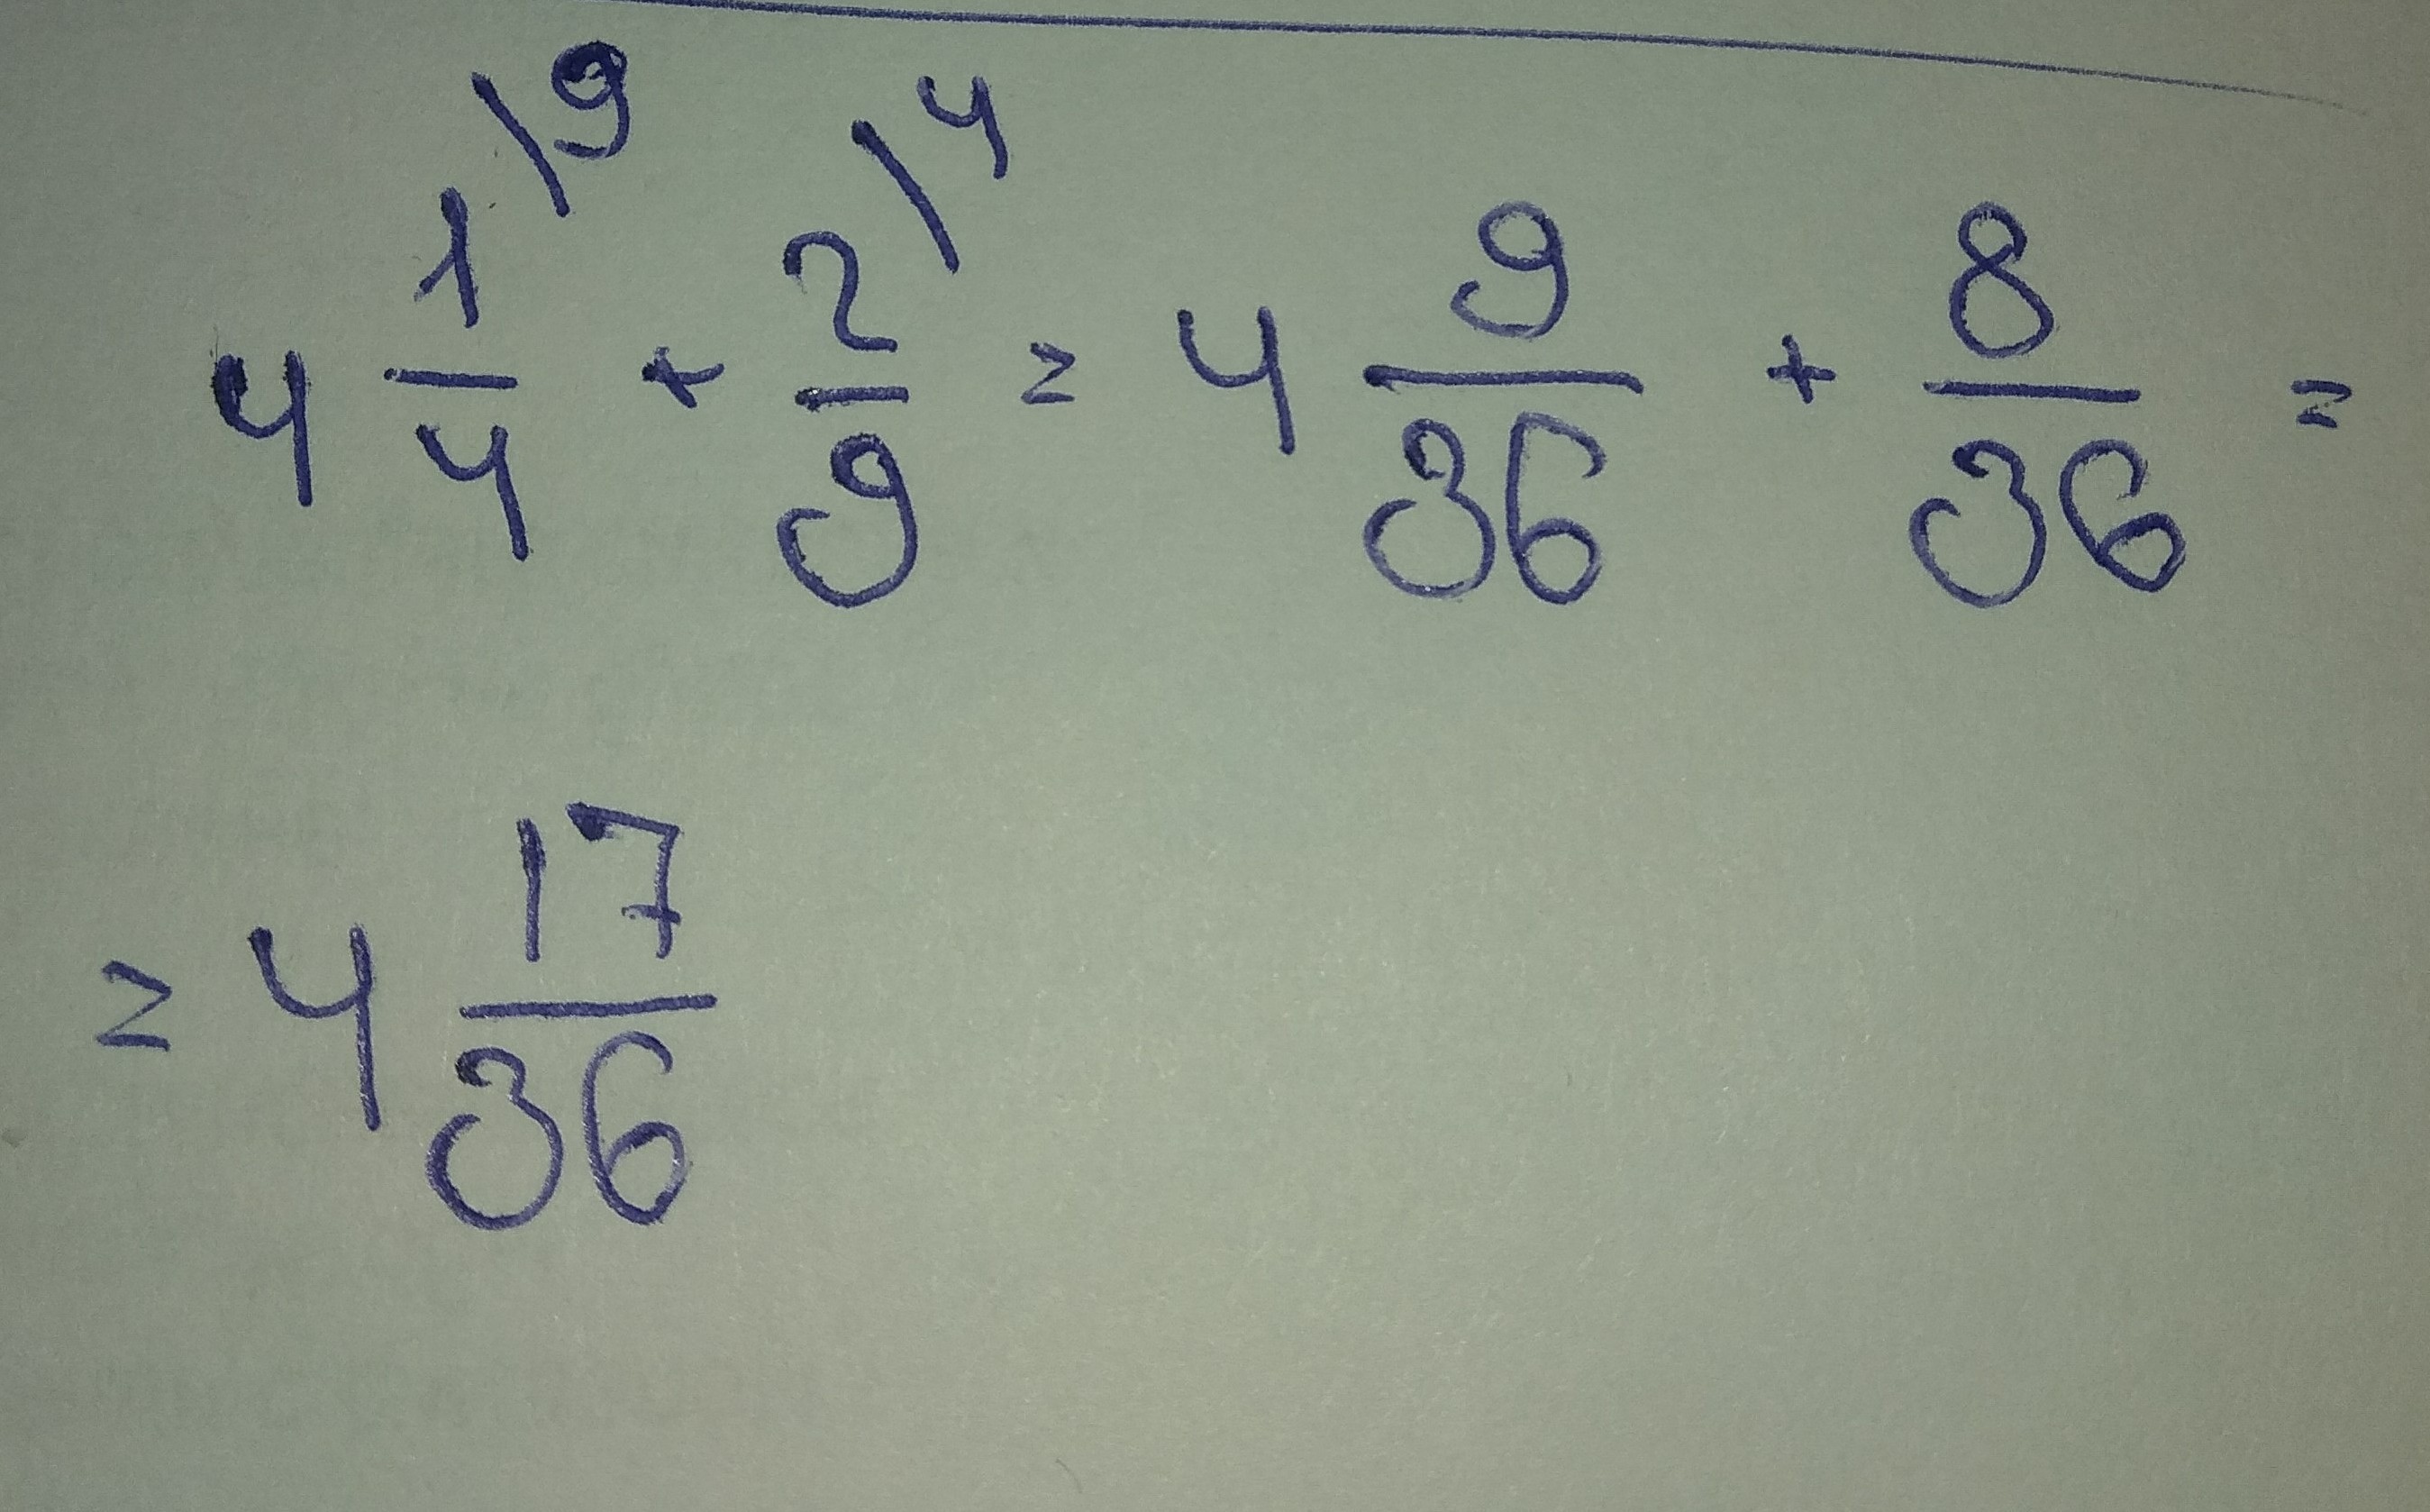 4 1/4 \9 + 2/9 \4 = 4 9/36 + 8/36 =
= 4 17/36